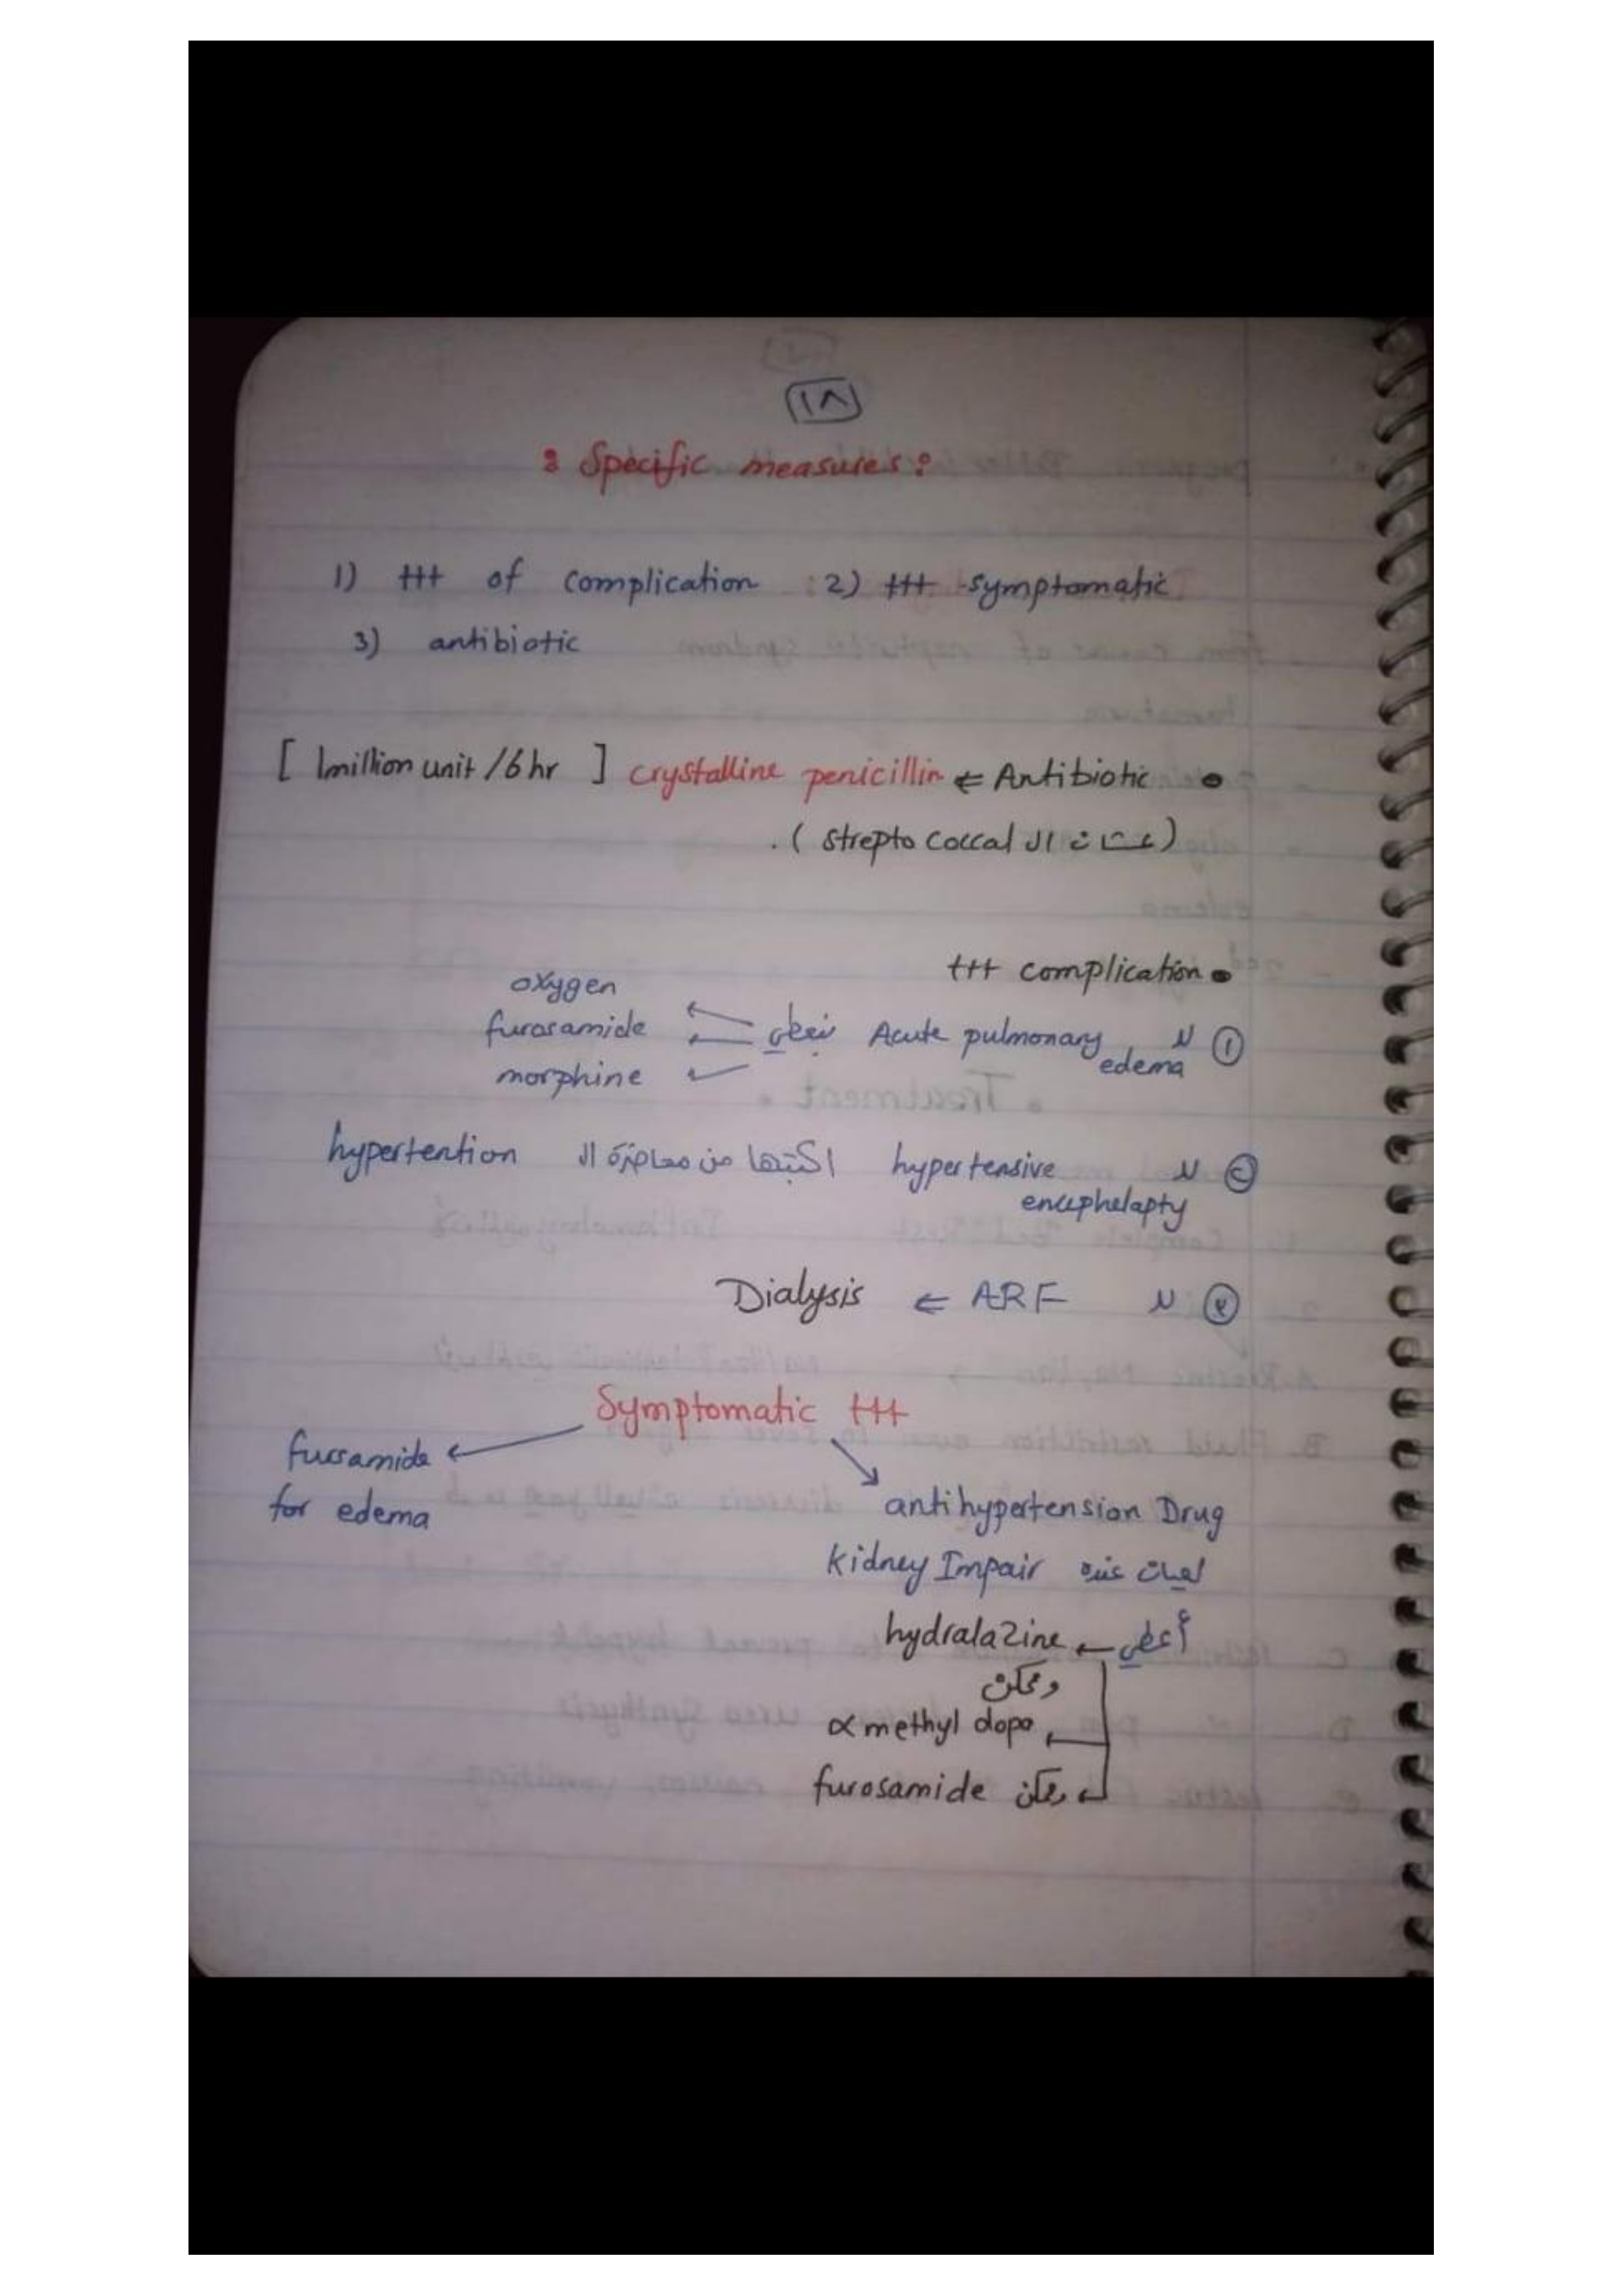 ١٨
: Specific measures :
1) ttt of complication : 2) ttt symptomatic
3) antibiotic
• Antibiotic ⇐ crystalline penicillin [ 1million unit /6 hr ]
(عشان ال strepto coccal ) .
• ttt complication
① لـ Acute pulmonary edema نعطي
oxygen
furosamide
morphine
② لـ hypertensive encephelapty اكتبها من محاضرة ال hypertention
③ لـ ARF ⇐ Dialysis
Symptomatic ttt
fursamide
for edema
antihypertension Drug
عنده kidney Impair
أعطي ← hydralazine
وممكن
α methyl dopa
وممكن furosamide